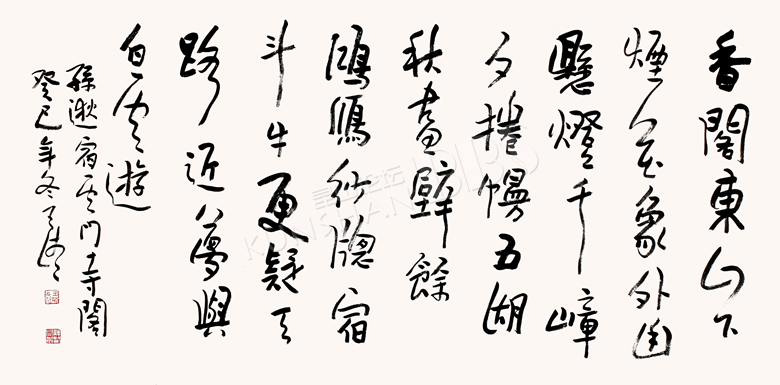 香閣東山下
煙花象外幽
懸燈千嶂
夕捲幔五湖
秋畫壁餘
鴻鴈紗牕宿
斗牛更疑天
路近夢與
白雲遊
孫逖宿雲門寺閣
癸巳年冬